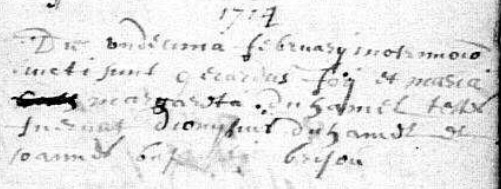 1714
Die undecima february matrimonio
iuncti sunt gerardus foy et maria
margareta duhamel testes
fuerunt dionysius duhamel et
joannes